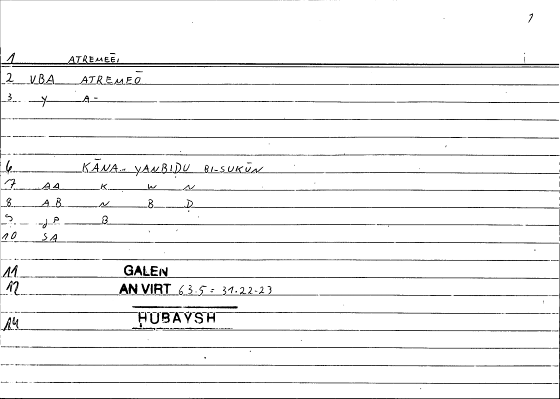 1
1 ATREMEĒI
2 VBA ATREMEŌ
3 y A-
6 KĀNA YANBIḌU BI-SUKŪN
7 AA K W N
8 AB N B Ḍ
9 JP B
10 SA
11 GALEN
12 AN VIRT 63.5 = 31.22-23
14 ḤUBAYSH